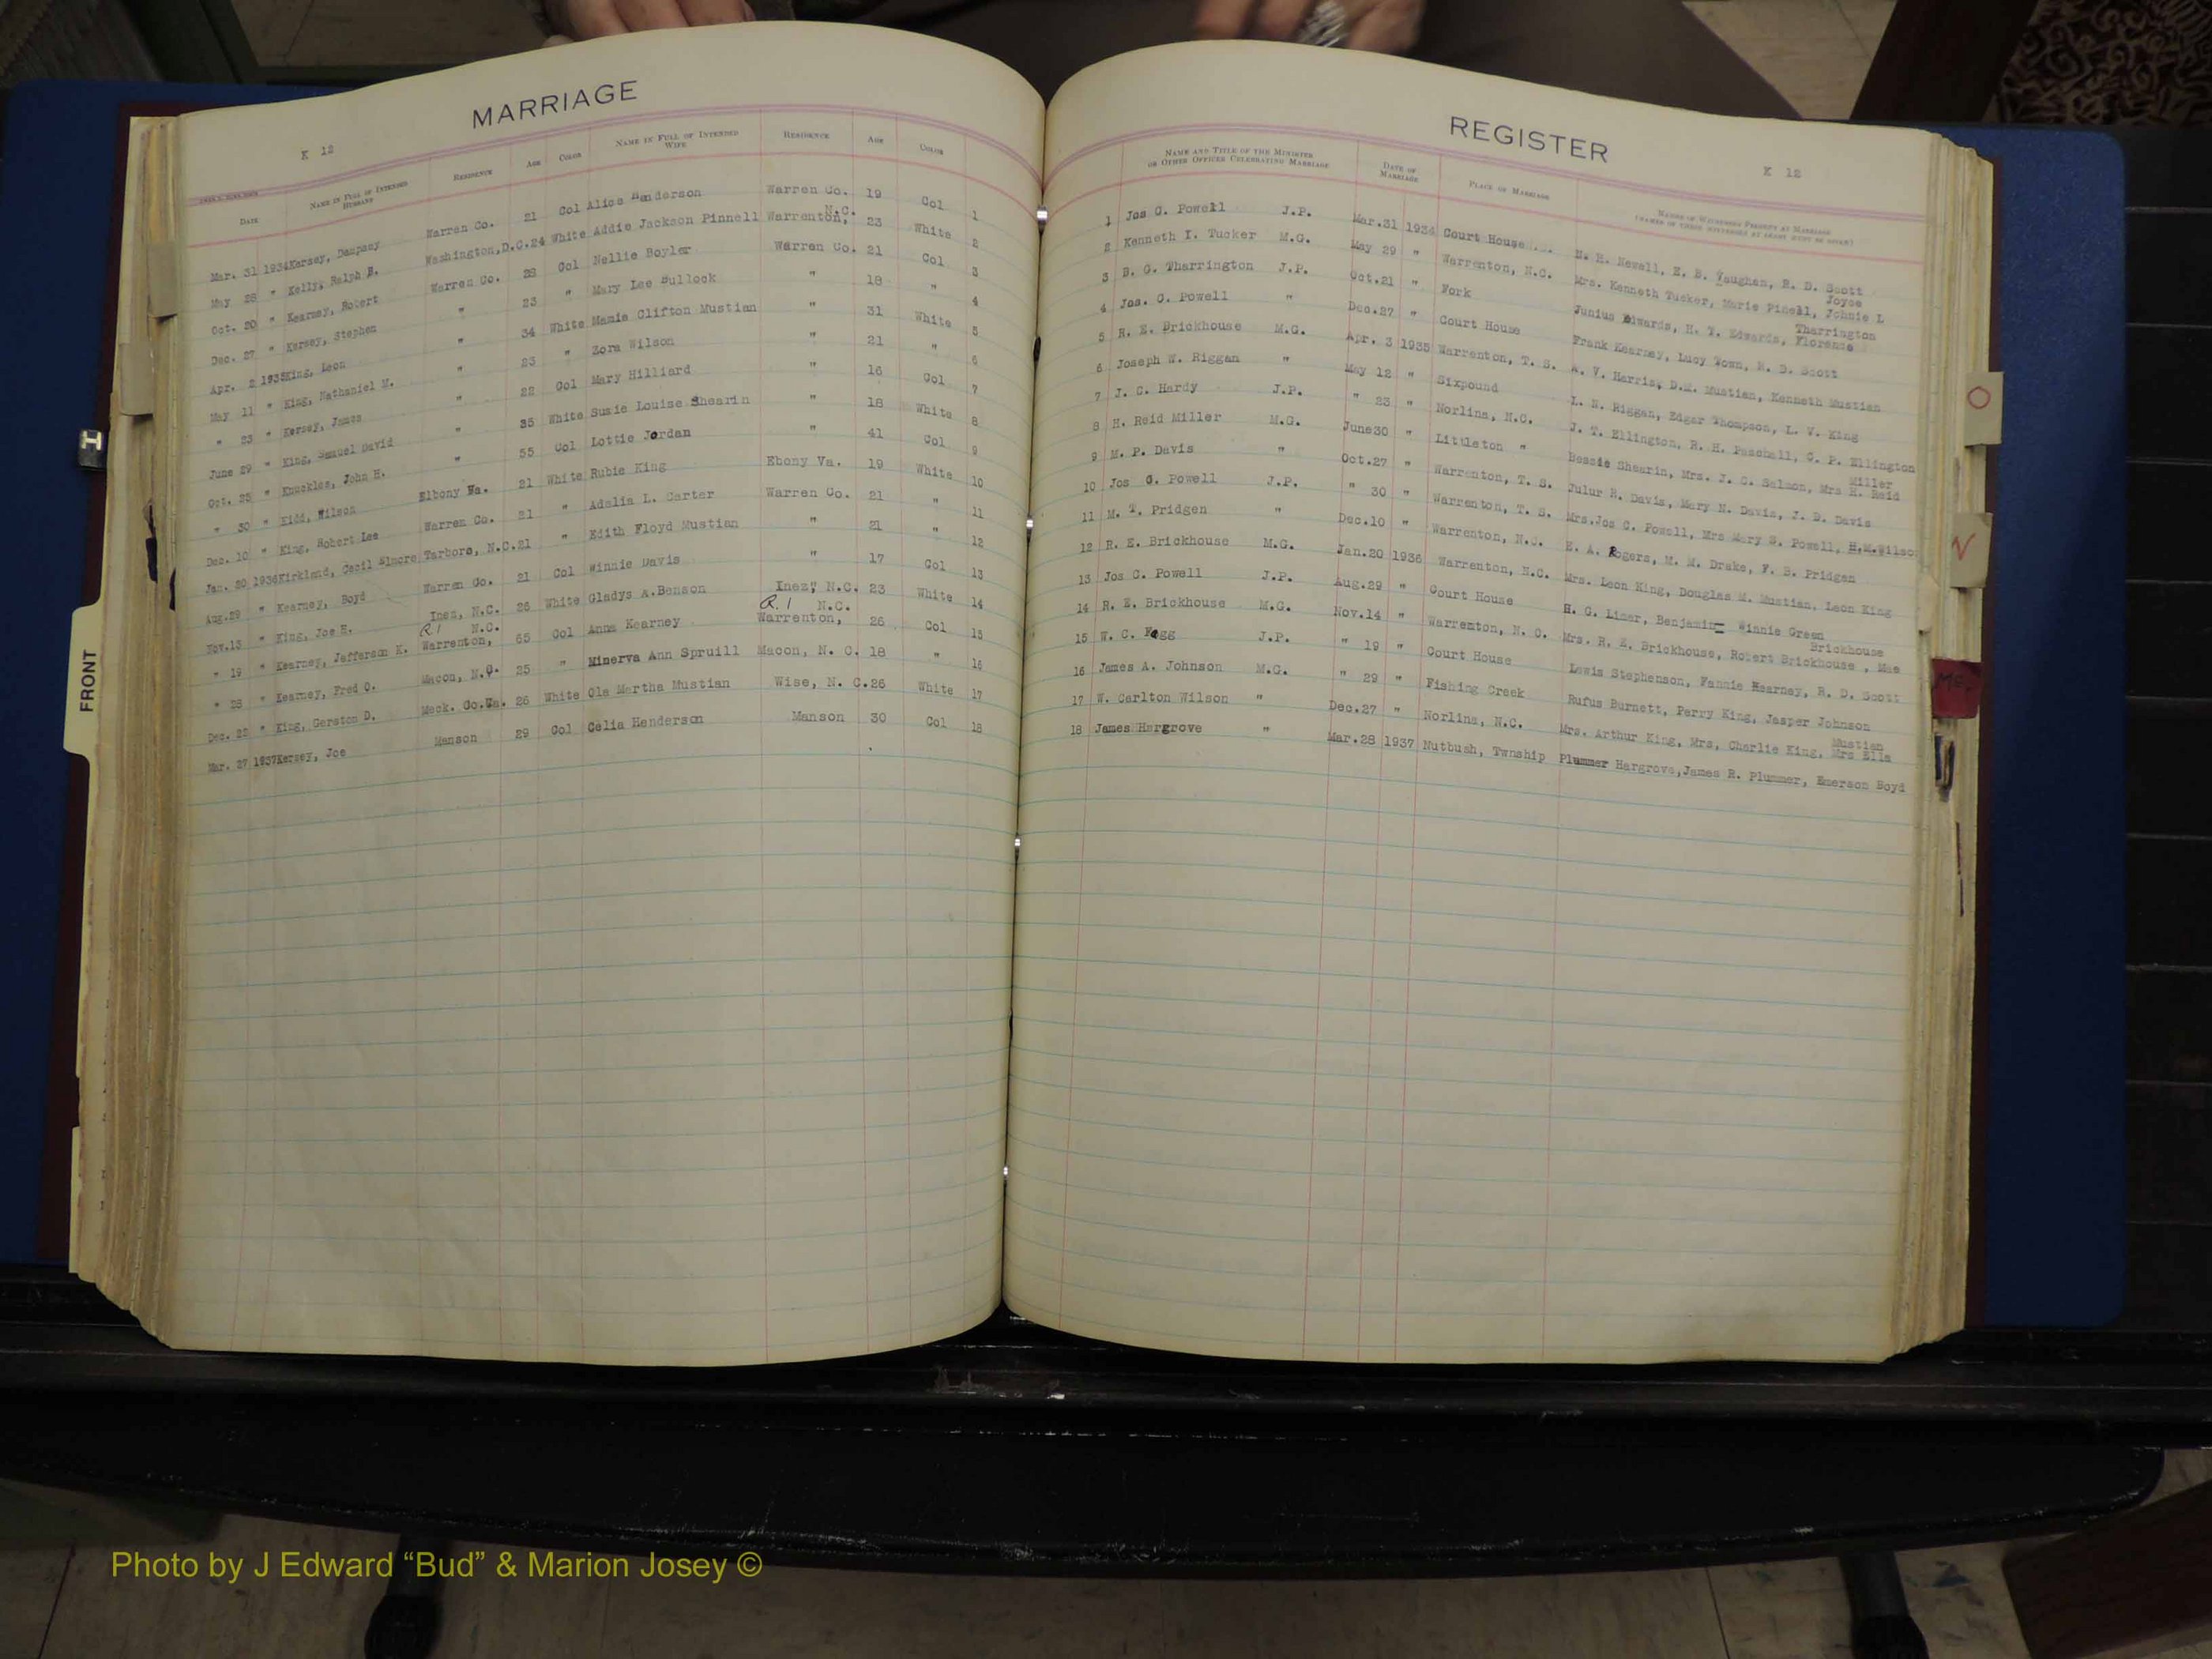 MARRIAGE
K 12
DATE NAME IN FULL OF INTENDED HUSBAND RESIDENCE AGE COLOR NAME IN FULL OF INTENDED WIFE RESIDENCE AGE COLOR
Mar. 31 1934 Kersey, Dempsey Warren Co. 21 Col Alice Henderson Warren Co. 19 Col 1
May 28 " Kelly, Ralph B. Washington, D.C. 24 White Addie Jackson Pinnell Warrenton, N.C. 23 White 2
Oct. 20 " Kearney, Robert Warren Co. 28 Col Nellie Boyler Warren Co. 21 Col 3
Dec. 27 " Kersey, Stephen " 23 " Mary Lee Bullock " 18 " 4
Apr. 2 1935 King, Leon " 34 White Mamie Clifton Mustian " 31 White 5
May 11 " King, Nathaniel M. " 23 " Zora Wilson " 21 " 6
" 23 " Kersey, James " 22 Col Mary Hilliard " 16 Col 7
June 29 " King, Samuel David " 35 White Susie Louise Shearin " 18 White 8
Oct. 25 " Knuckles, John H. " 55 Col Lottie Jordan " 41 Col 9
" 30 " Kidd, Wilson Elbony Va. 21 White Rubie King Ebony Va. 19 White 10
Dec. 10 " King, Robert Lee Warren Co. 21 " Adalia L. Carter Warren Co. 21 " 11
Jan. 20 1936 Kirkland, Cecil Elmore Tarboro, N.C. 21 " Edith Floyd Mustian " 21 " 12
Aug.29 " Kearney, Boyd Warren Co. 21 Col Winnie Davis " 17 Col 13
Nov.13 " King, Joe E. Inez, N.C. 26 White Gladys A.Benson Inez, N.C. 23 White 14
" 19 " Kearney, Jefferson K. R.1 Warrenton, N.C. 65 Col Anna Kearney R.1 Warrenton, N.C. 26 Col 15
" 28 " Kearney, Fred O. Macon, N.C. 25 " Minerva Ann Spruill Macon, N. C. 18 " 16
Dec. 22 " King, Gerston D. Meck. Co.Va. 26 White Ola Martha Mustian Wise, N. C. 26 White 17
Mar. 27 1937 Kersey, Joe Manson 29 Col Celia Henderson Manson 30 Col 18
REGISTER
K 12
NAME AND TITLE OF THE MINISTER OR OTHER OFFICER CELEBRATING MARRIAGE DATE OF MARRIAGE PLACE OF MARRIAGE NAMES OF WITNESSES PRESENT AT MARRIAGE
1 Jos C. Powell J.P. Mar.31 1934 Court House N. H. Newell, E. B. Vaughan, R. D. Scott
2 Kenneth I. Tucker M.G. May 29 " Warrenton, N.C. Mrs. Kenneth Tucker, Marie Pinell, Johnie L Joyce
3 B. G. Tharrington J.P. Oct.21 " Fork Junius Edwards, H. T. Edwards, Florence Tharrington
4 Jos. C. Powell " Dec.27 " Court House Frank Kearney, Lucy Town, R. D. Scott
5 R. E. Brickhouse M.G. Apr. 3 1935 Warrenton, T. S. A. V. Harris, D.M. Mustian, Kenneth Mustian
6 Joseph W. Riggan " May 12 " Sixpound L. N. Riggan, Edgar Thompson, L. V. King
7 J. C. Hardy J.P. " 23 " Norlina, N.C. J. T. Ellington, R. H. Paschall, C. P. Ellington
8 H. Reid Miller M.G. June30 " Littleton " Bessie Shearin, Mrs. J. C. Salmon, Mrs H. Reid Miller
9 M. P. Davis " Oct.27 " Warrenton, T. S. Julur R. Davis, Mary N. Davis, J. B. Davis
10 Jos C. Powell J.P. " 30 " Warrenton, T. S. Mrs.Jos C. Powell, Mrs Mary S. Powell, H.M.Wilson
11 M. T. Pridgen " Dec.10 " Warrenton, N.C. E. A. Rogers, M. M. Drake, F. B. Pridgen
12 R. E. Brickhouse M.G. Jan.20 1936 Warrenton, N.C. Mrs. Leon King, Douglas M. Mustian, Leon King
13 Jos C. Powell J.P. Aug.29 " Court House H. C. Limer, Benjamin Winnie Green
14 R. E. Brickhouse M.G. Nov.14 " Warrenton, N. C. Mrs. R. E. Brickhouse, Robert Brickhouse, Mae Brickhouse
15 W. C. Fagg J.P. " 19 " Court House Lewis Stephenson, Fannie Kearney, R. D. Scott
16 James A. Johnson M.G. " 29 " Fishing Creek Rufus Burnett, Perry King, Jasper Johnson
17 W. Carlton Wilson " Dec.27 " Norlina, N.C. Mrs. Arthur King, Mrs, Charlie King, Mrs Ella Mustian
18 James Hargrove " Mar.28 1937 Nutbush, Twnship Plummer Hargrove, James R. Plummer, Emerson Boyd
FRONT
O
N
Photo by J Edward “Bud” & Marion Josey ©